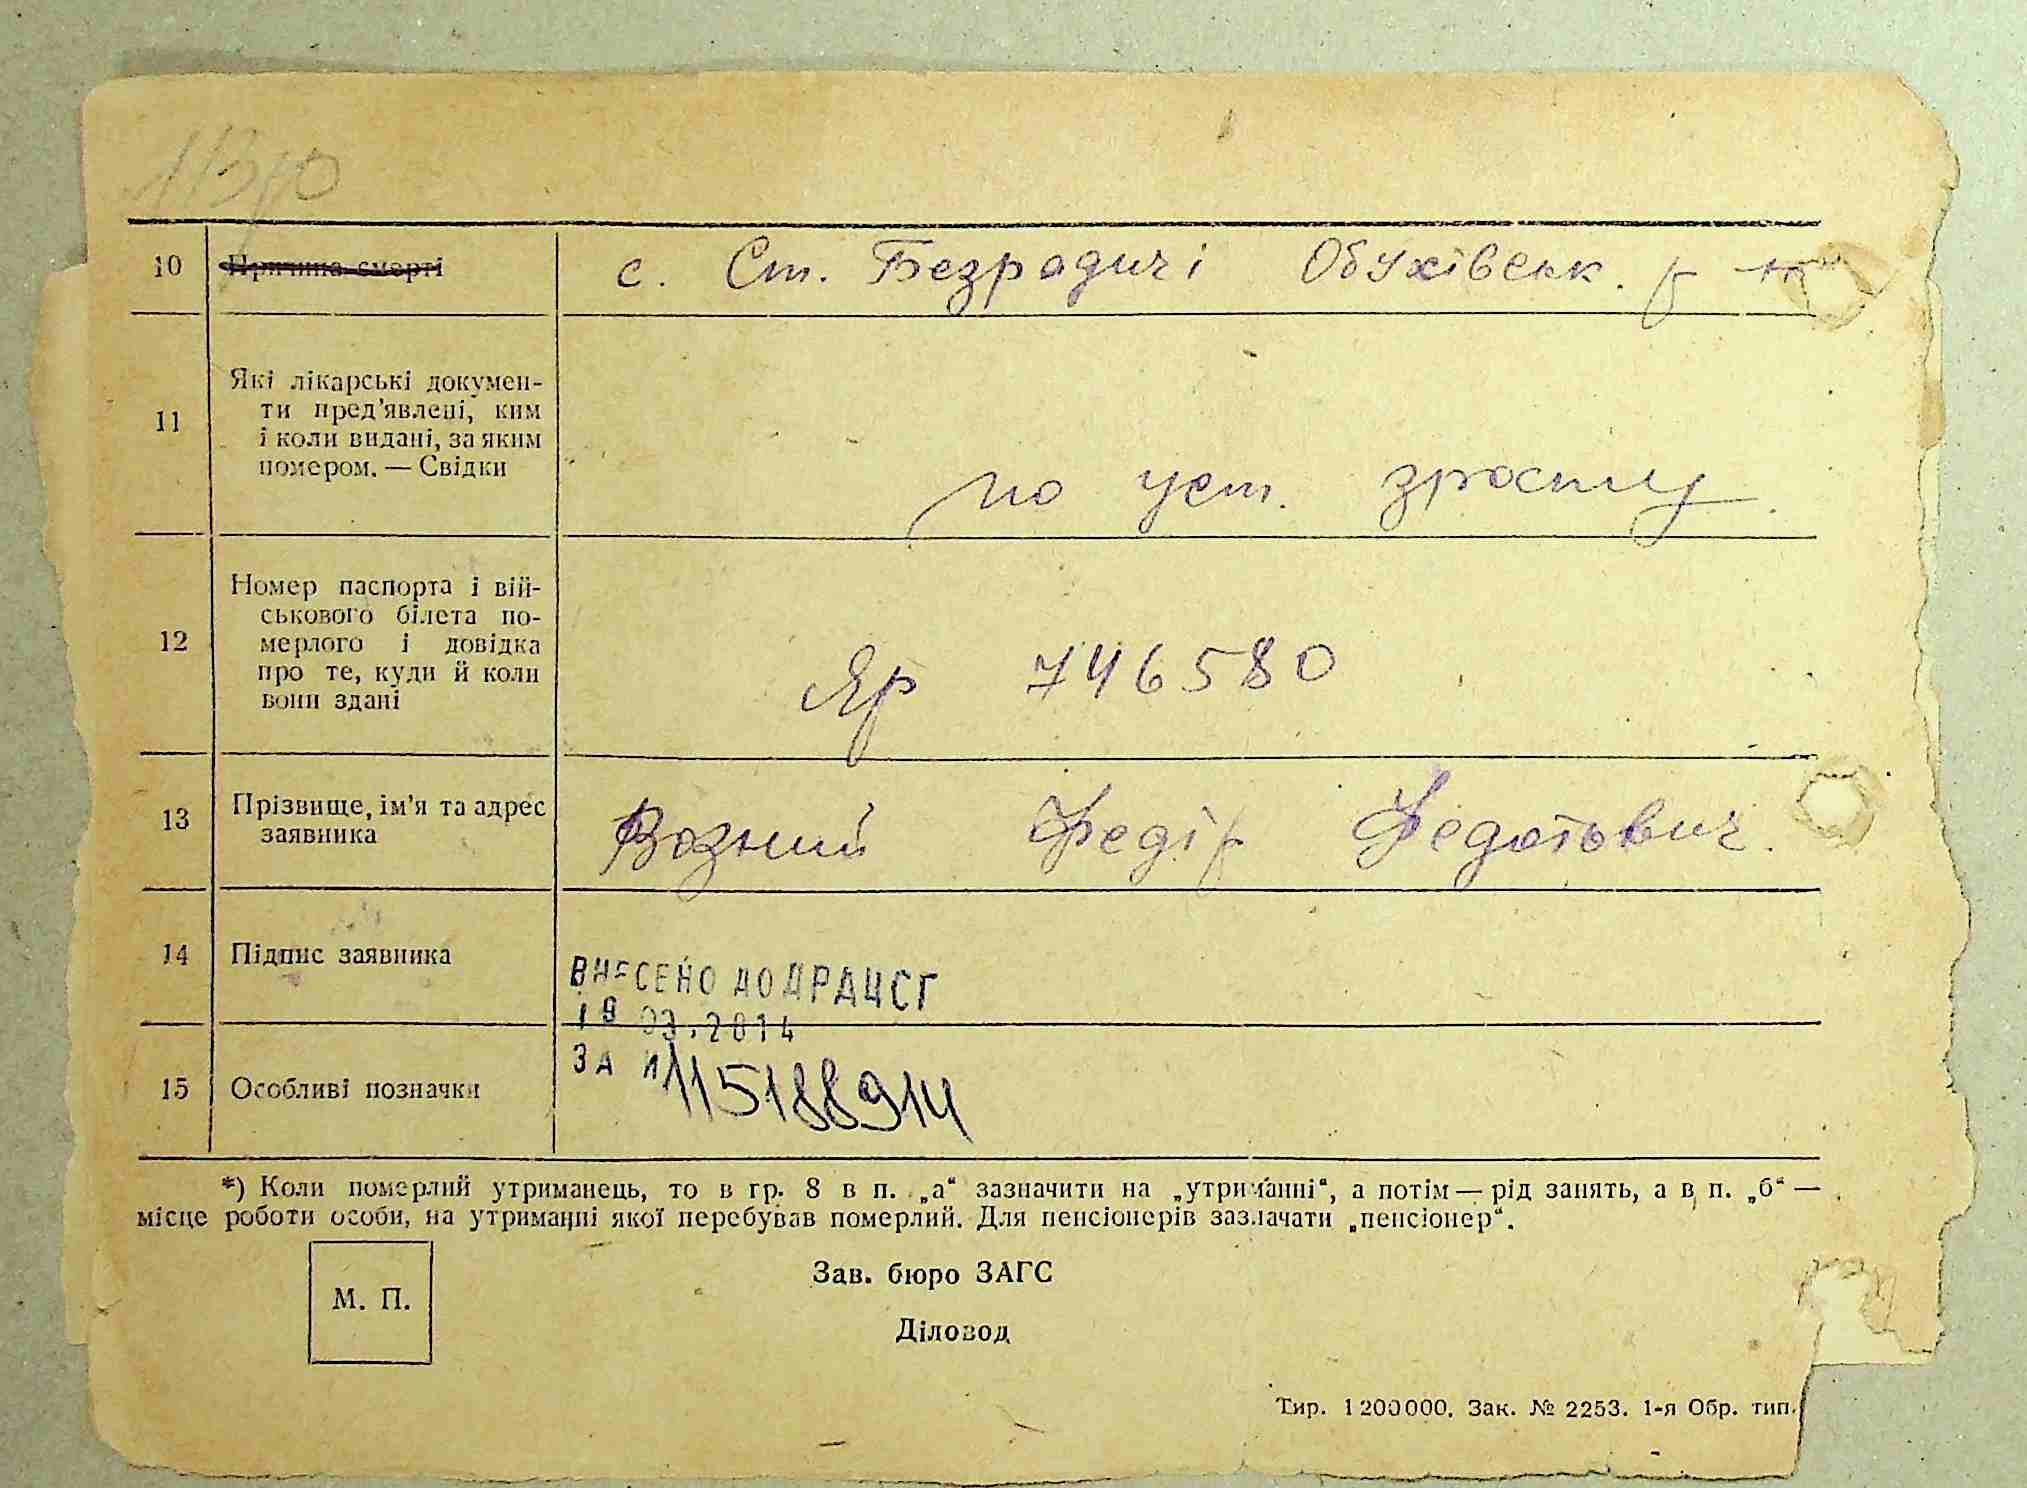 10 Причина смерті с. Ст. Безрадичі Обухівськ. р-н
11 Які лікарські докумен-
ти пред'явлені, ким
і коли видані, за яким
номером. — Свідки
по уст. зросту.
12 Номер паспорта і вій-
ськового білета по-
мерлого і довідка
про те, куди й коли
вони здані
Яр 746580
13 Прізвище, ім'я та адрес
заявника
Возний Федір Федотович.
14 Підпис заявника
ВНЕСЕНО ДО ДРАЦСГ
19 03.2014
ЗА №115188914
15 Особливі позначки
*) Коли померлий утриманець, то в гр. 8 в п. „а“ зазначити на „утриманні“, а потім — рід занять, а в п. „б“ —
місце роботи особи, на утриманні якої перебував померлий. Для пенсіонерів зазначати „пенсіонер“.
Зав. бюро ЗАГС
М. П.
Діловод
Тир. 1200000. Зак. № 2253. 1-я Обр. тип.